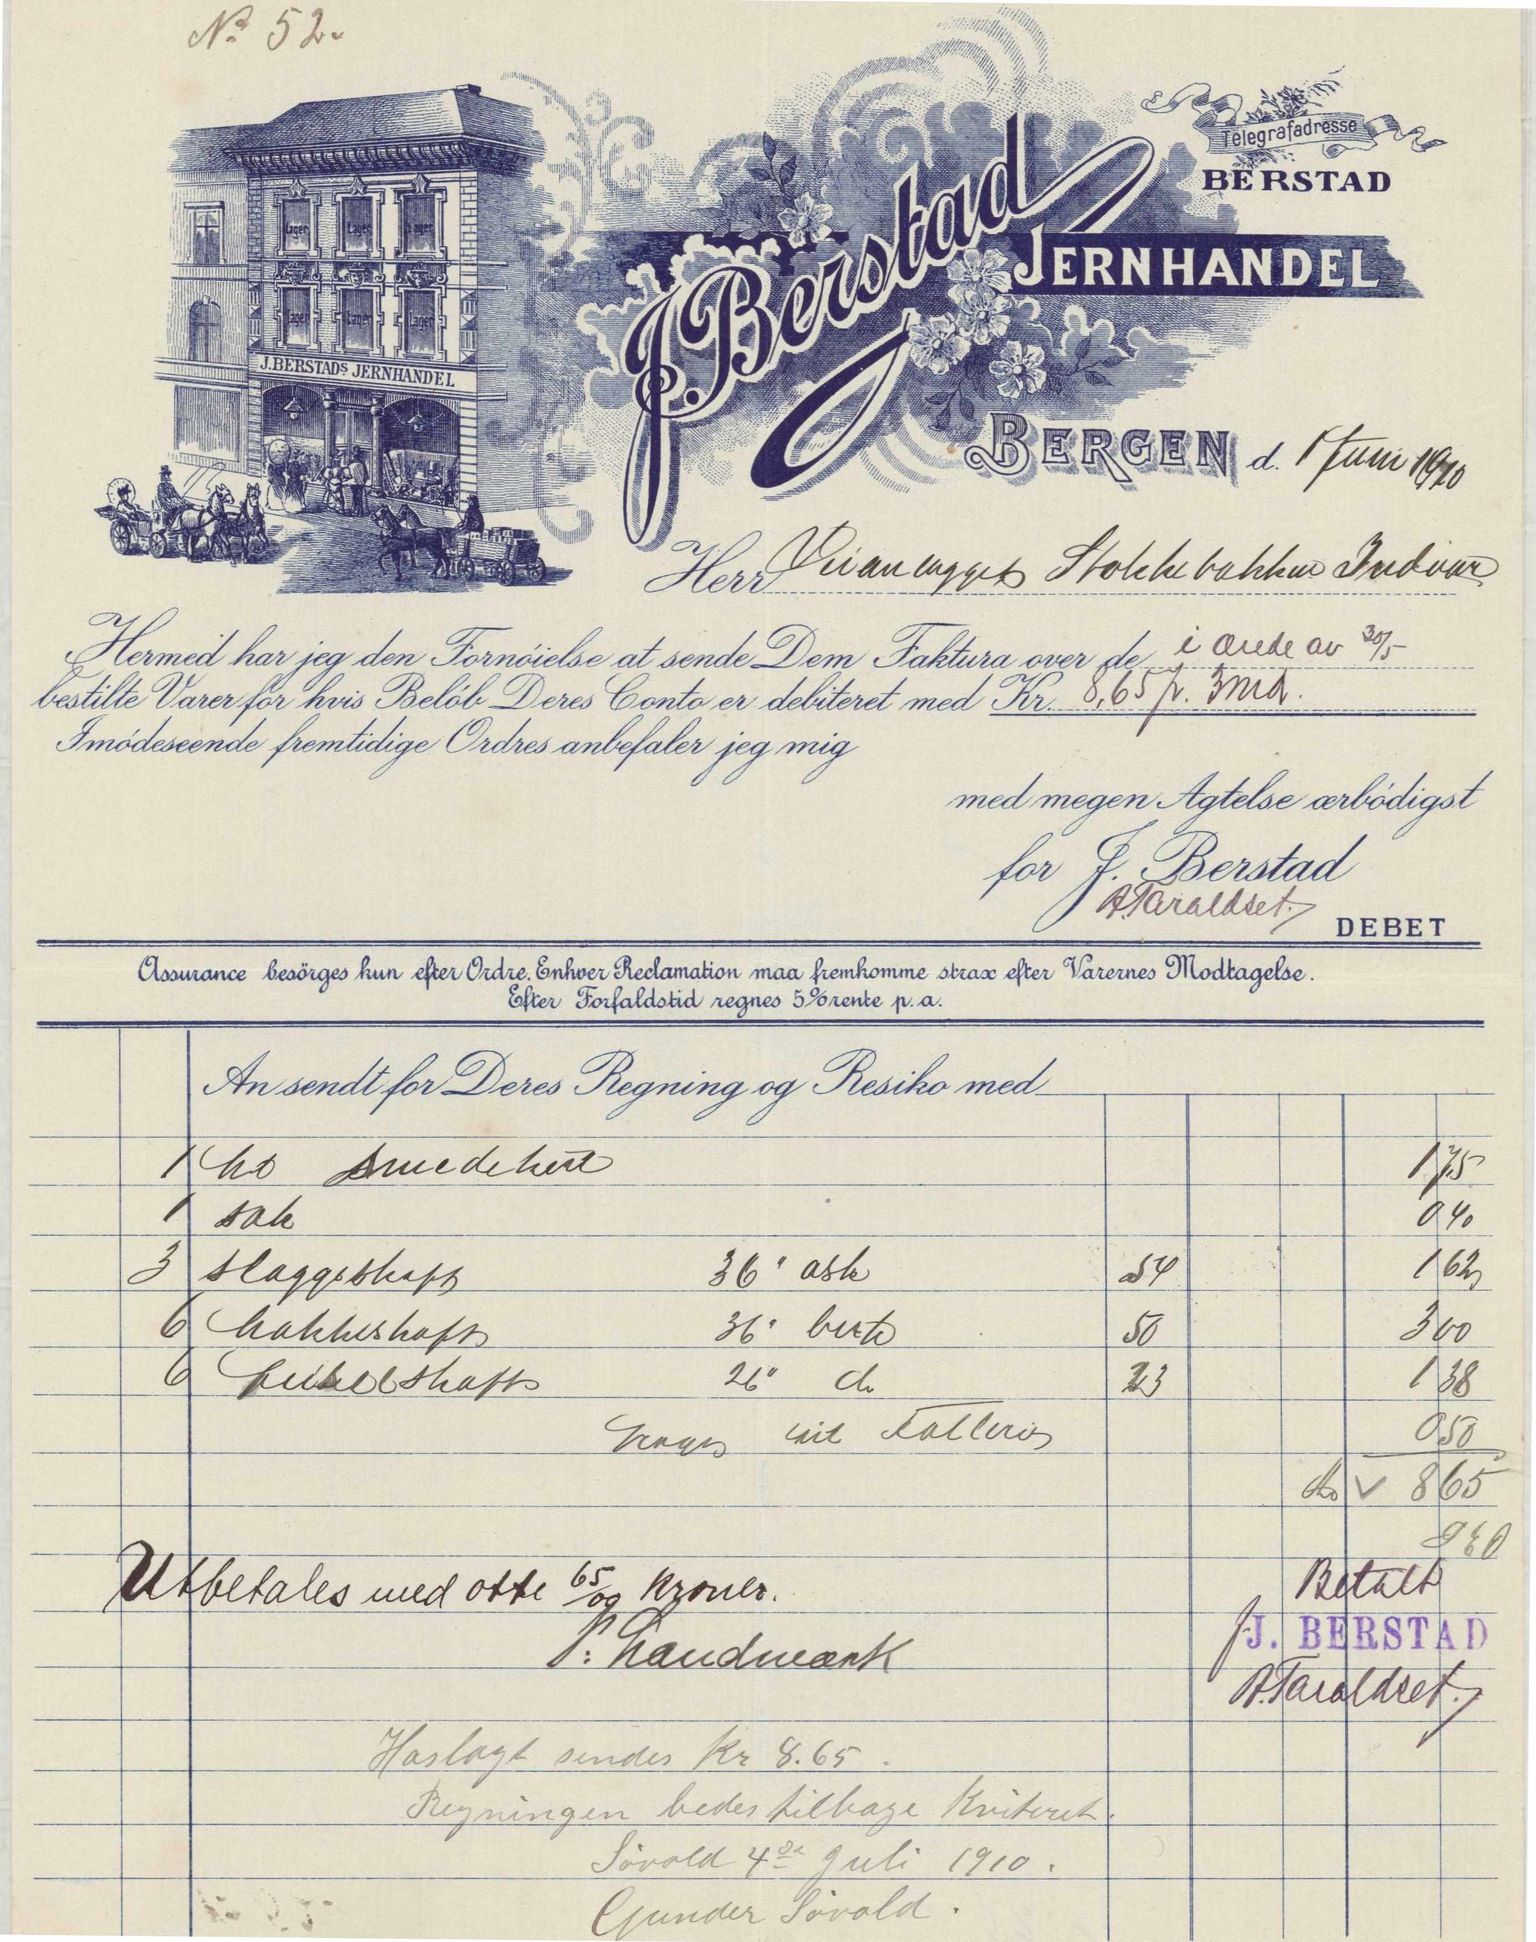 No 52.
Telegrafadresse
BERSTAD
J. Berstad
JERNHANDEL
Lager Lager Lager
Lager Lager Lager
J. BERSTADS JERNHANDEL
BERGEN d. 1 Juni 1910
Herr Veianlægget Stokkebakken Indvær
Hermed har jeg den Fornöielse at sende Dem Faktura over de i ordre av 30/5
bestilte Varer for hvis Belöb Deres Conto er debiteret med Kr. 8,65 pr. 3 md.
Imödeseende fremtidige Ordres anbefaler jeg mig
med megen Agtelse ærbödigst
for J. Berstad
A. Taraldset.
DEBET
Assurance besörges kun efter Ordre. Enhver Reclamation maa fremkomme strax efter Varernes Modtagelse.
Efter Forfaldstid regnes 5% rente p. a.
An sendt for Deres Regning og Resiko med
1 1 75
1 sæk 0 40
3 slæggeskaft 36" ask 54 1 62
6 hakkeskaft 36" birk 50 3 00
6 feiselskaft 26" do 23 1 38
0 50
Kr 8 65
Utbetales med otte 65/og kroner.
P. Landmark
Betalt
J. BERSTAD
A. Taraldset.
Haslagt sendes Kr 8.65.
Regningen bedes tilbage Kviteret.
Søvold 4de Juli 1910.
Gunder Søvold.